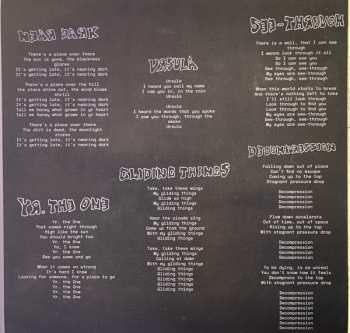 NEAR DARK
There's a place over there
The sun is gone, the blackness
glares
It's getting late, it's nearing dark
It's getting late, it's nearing dark
There's a place over there
the stars shine out, the wind blows
It's getting late, it's nearing dark
It's getting late, it's nearing dark
Tell me honey what grows in yr heart
Tell me honey what grows in yr heart
There's a place over there
The dirt is dust, the moonlight
It's getting late, it's nearing dark
It's getting late, it's nearing dark
URSULA
Ursula
I heard you call my name
I saw you in the rain
Ursula
Ursula
I heard the words that you spoke
I saw you through, through the
smoke
Ursula
SEE-THROUGH
There is a wall, that I can see
through
I wanna look through it all
So I can see you
So I can see you
See through, see-through
My eyes are see-through
See-through, see-through
My eyes are see-through
When this world starts to break
And there's nothing left to take
I'll still look through
Look through to find you
Look through to find you
My eyes are see-through
See-through, see-through
My eyes are see-through
See-through, see-through
YR. THE ONE
Yr. the One
That comes right through
High like the sun
You should bright too
Yr. the One
Yo, I know
Yr. the One
See you come and go
When it comes on strong
It's hard I know
Looking for someone, for a place to go
Yr. the One
Yr. the One
Yr. the One
Yr. the One
Yr. the One
GLIDING THINGS
Take, take these wings
My gliding things
Glide so high
My gliding things
Gliding things
Hear the clouds sing
My gliding things
Come up from the ground
With my gliding things
Gliding things
Take, take these wings
My gliding things
Calling at dawn
With my gliding things
Gliding things
Gliding things
Gliding things
Gliding things
Gliding things
DECOMPRESSION
Falling down out of place
Can't find no escape
Coming up to the top
Stagnant pressure drop
Decompression
Decompression
Decompression
Decompression
Flow down accelerate
Out of time, out of space
Rising up to the top
With stagnant pressure drop
Decompression
Decompression
Decompression
Decompression
To be dying, is so unreal
You don't know how it feels
Decompress to the top
With stagnant pressure drop
Decompression
Decompression
Decompression
Decompression
Decompression